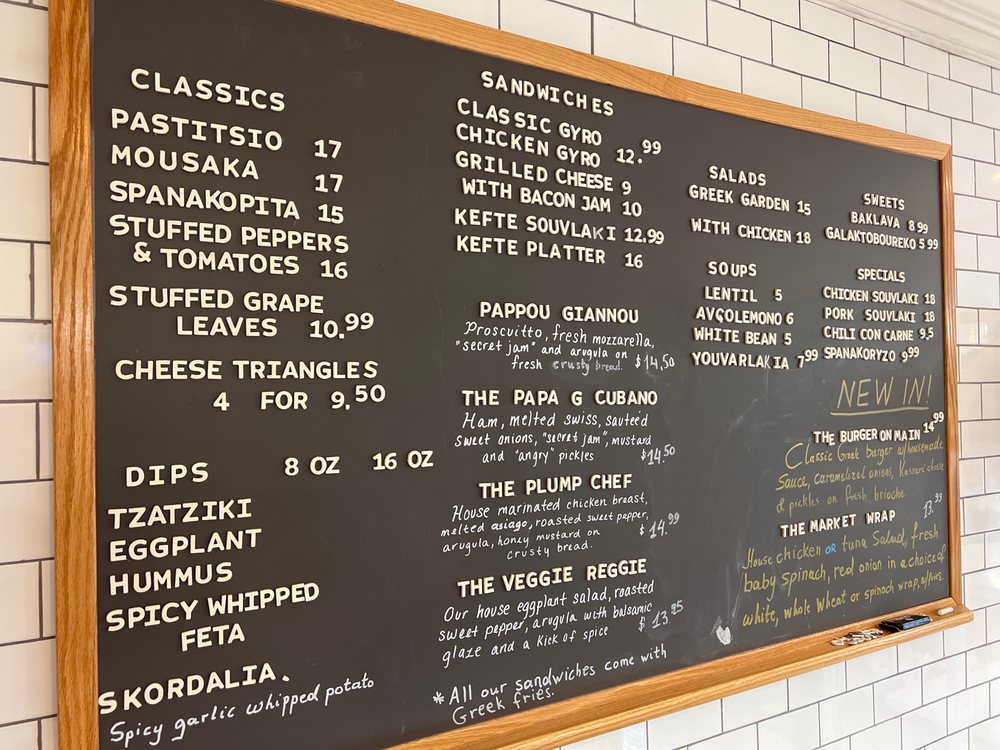 CLASSICS
PASTITSIO 17
MOUSAKA 17
SPANAKOPITA 15
STUFFED PEPPERS
& TOMATOES 16
STUFFED GRAPE
LEAVES 10.99
CHEESE TRIANGLES
4 FOR 9.50
DIPS 8 OZ 16 OZ
TZATZIKI
EGGPLANT
HUMMUS
SPICY WHIPPED
FETA
SKORDALIA.
Spicy garlic whipped potato
SANDWICHES
CLASSIC GYRO
CHICKEN GYRO 12.99
GRILLED CHEESE 9
WITH BACON JAM 10
KEFTE SOUVLAKI 12.99
KEFTE PLATTER 16
PAPPOU GIANNOU
Proscuitto, fresh mozzarella,
"secret jam" and arugula on
fresh crusty bread. $14,50
THE PAPA G CUBANO
Ham, melted swiss, sauteéd
sweet onions, "secret jam", mustard
and "angry" pickles $14.50
THE PLUMP CHEF
House marinated chicken breast,
melted asiago, roasted sweet pepper,
arugula, honey mustard on $14.99
crusty bread.
THE VEGGIE REGGIE
Our house eggplant salad, roasted
sweet pepper, arugula with balsamic
glaze and a kick of spice $13.95
*All our sandwiches come with
Greek fries.
SALADS
GREEK GARDEN 15
WITH CHICKEN 18
SOUPS
LENTIL 5
AVGOLEMONO 6
WHITE BEAN 5
YOUVARLAKIA 7.99
SWEETS
BAKLAVA 8.99
GALAKTOBOUREKO 5.99
SPECIALS
CHICKEN SOUVLAKI 18
PORK SOUVLAKI 18
CHILI CON CARNE 9,5
SPANAKORYZO 9.99
NEW IN!
THE BURGER ON MAIN 14.99
Classic Greek burger w/housemade
Sauce, caramelized onions, Kasseri cheese
& pickles on fresh brioche.
THE MARKET WRAP 13.99
House chicken OR tuna Salad, fresh
baby Spinach, red onion in a choice of
white, whole Wheat or spinach wrap, w/fries.